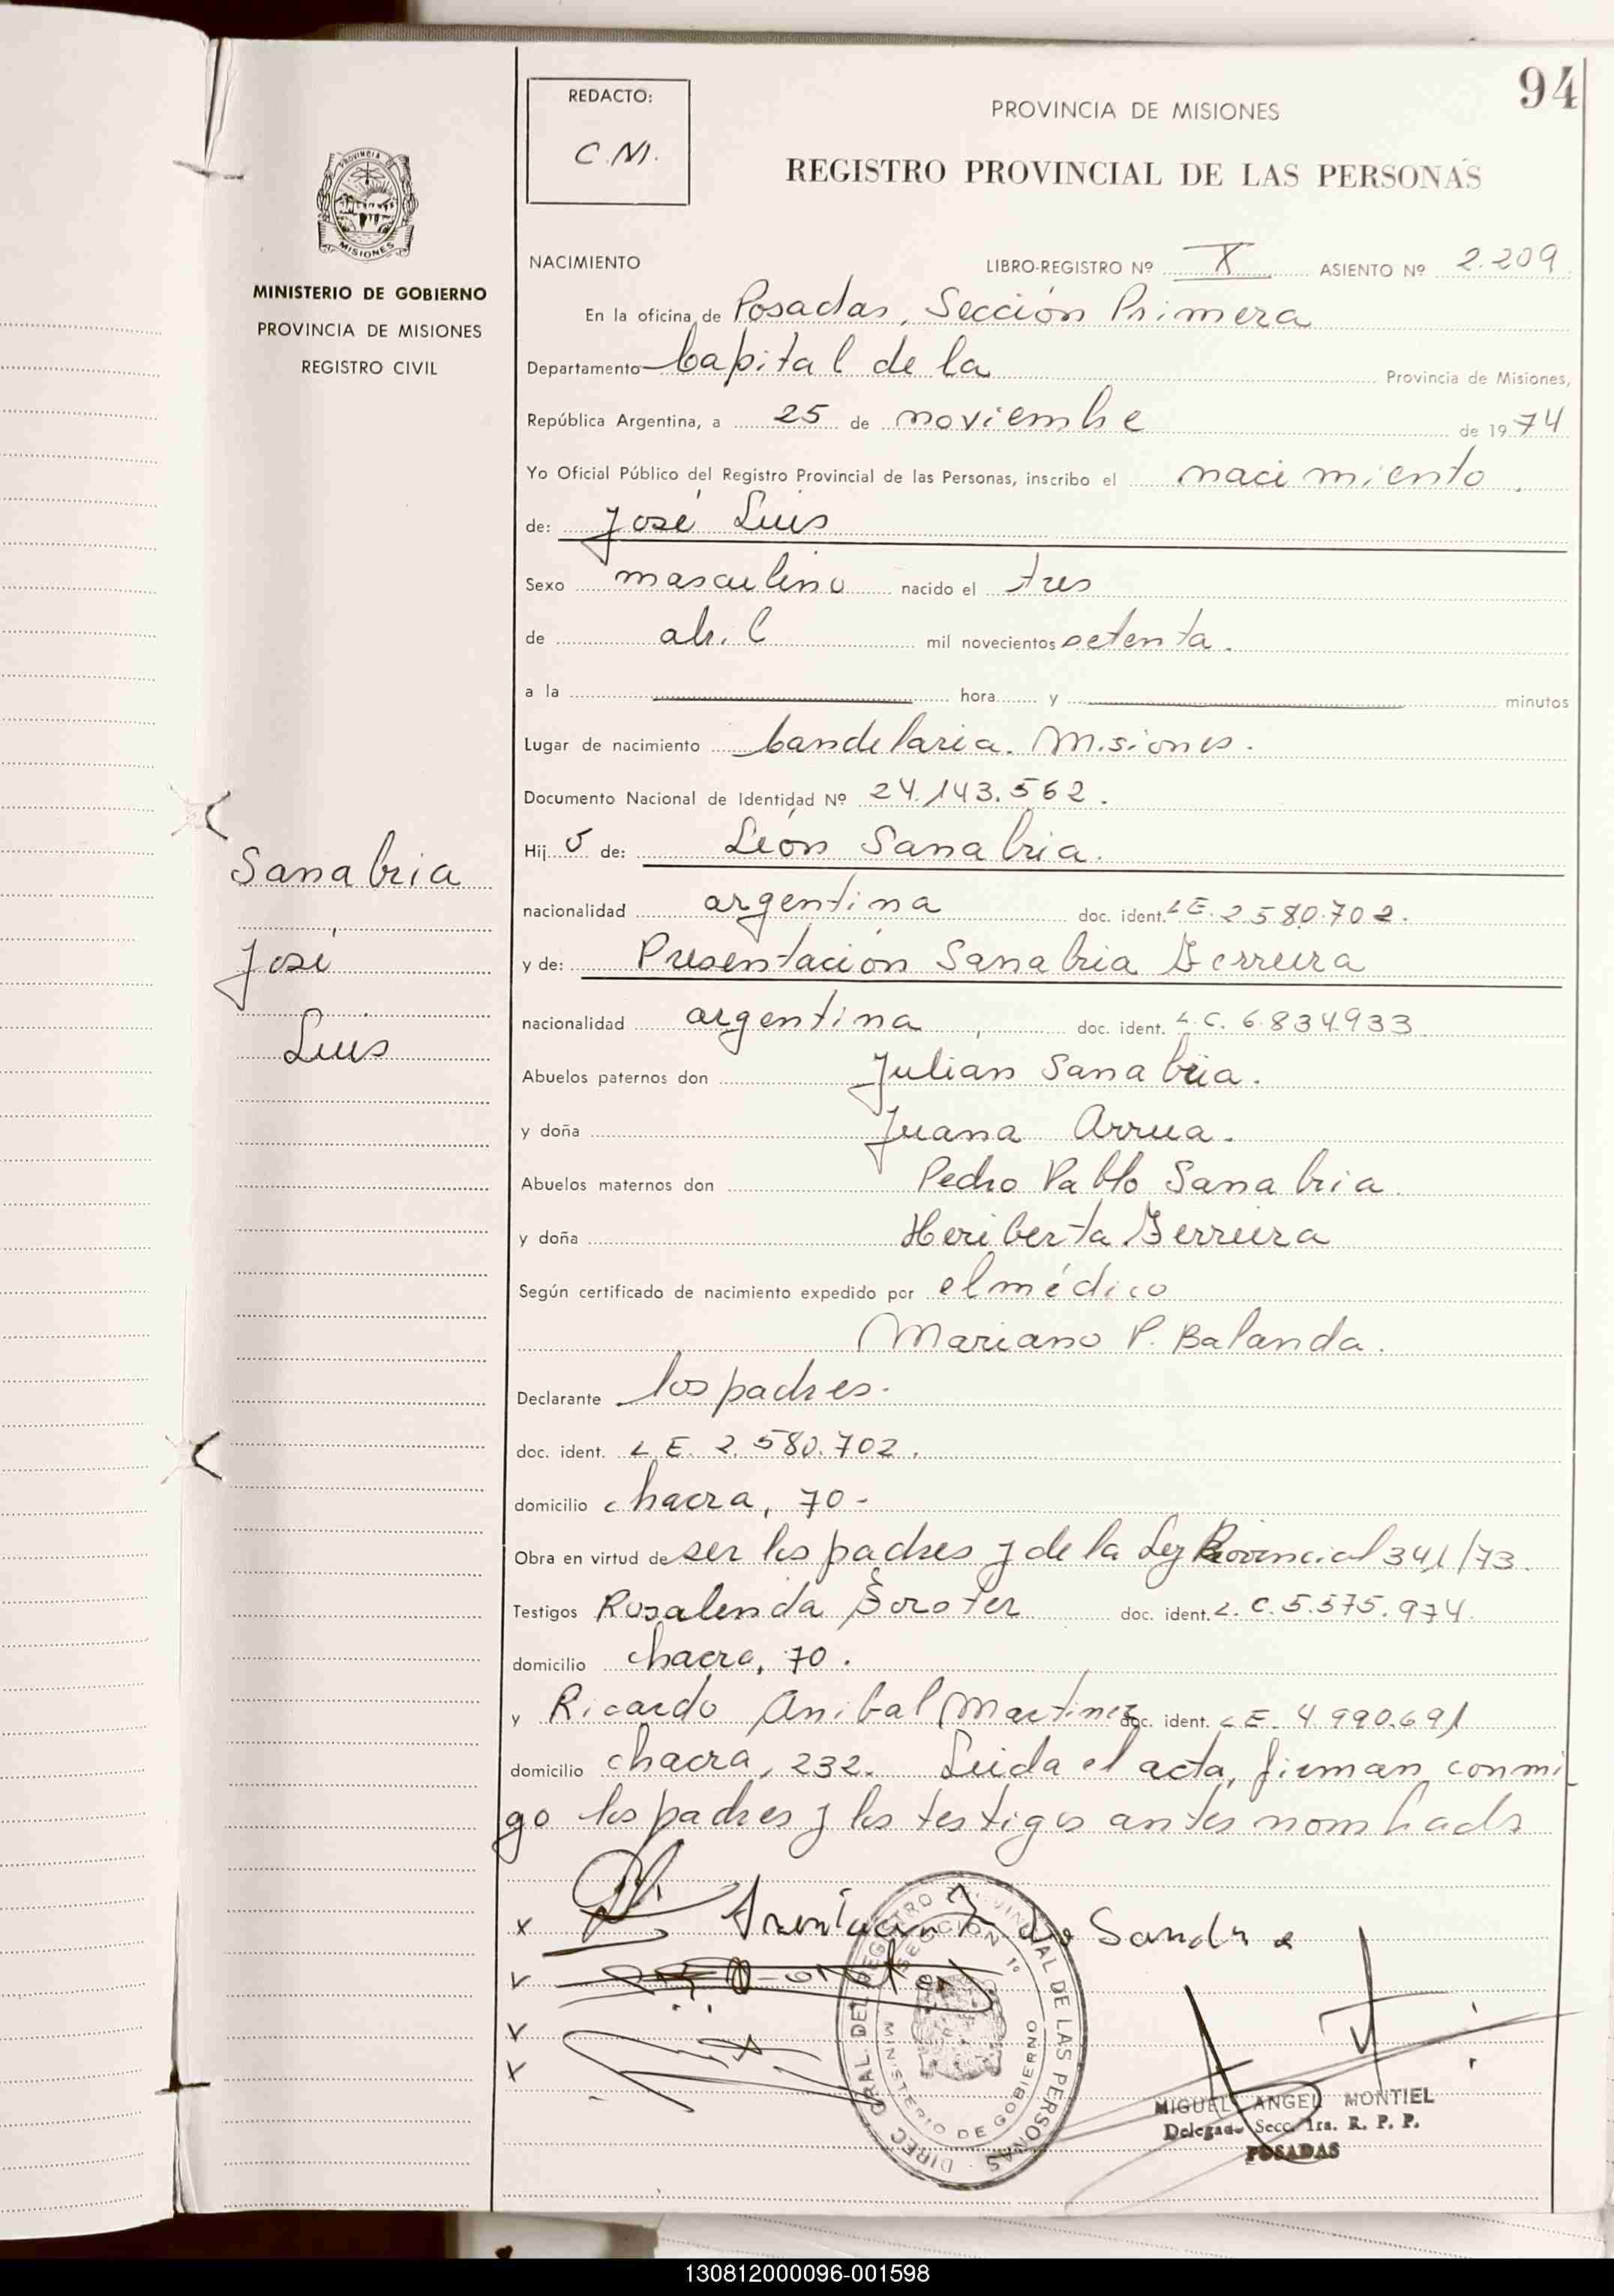 94
REDACTO:
C.M.
PROVINCIA DE MISIONES
REGISTRO PROVINCIAL DE LAS PERSONAS
PROVINCIA DE
MISIONES
MINISTERIO DE GOBIERNO
PROVINCIA DE MISIONES
REGISTRO CIVIL
NACIMIENTO LIBRO-REGISTRO Nº X ASIENTO Nº 2.209
En la oficina de Posadas, Sección Primera
Departamento Capital de la Provincia de Misiones,
República Argentina, a 25 de noviembre de 1974
Yo Oficial Público del Registro Provincial de las Personas, inscribo el nacimiento
de: José Luis
Sexo masculino nacido el tres
de abril mil novecientos setenta.
a la hora y minutos
Lugar de nacimiento Candelaria. Misiones.
Documento Nacional de Identidad Nº 24.143.562.
Hijo de: León Sanabria.
nacionalidad argentina doc. ident. LE. 2580.702.
y de: Presentación Sanabria Ferreira
nacionalidad argentina, doc. ident. L.C. 6.834.933
Abuelos paternos don Julian Sanabria.
y doña Juana Arrua.
Abuelos maternos don Pedro Pablo Sanabria
y doña Heriberta Ferreira
Según certificado de nacimiento expedido por el médico
Mariano P. Balanda.
Declarante los padres.
doc. ident. L.E. 2.580.702.
domicilio chacra, 70-
Obra en virtud de ser los padres y de la Ley Provincial 341/73.
Testigos Rosalinda doc. ident. L.C. 5.575.974.
domicilio chacra, 70.
y Ricardo Anibal Martinez doc. ident. LE. 4990.691
domicilio chacra, 232. Leida el acta, firman conmi
go los padres y los testigos antes nombrads
Sanabria
José
Luis
DIREC. GRAL. DEL REGISTRO PROVINCIAL DE LAS PERSONAS
SECCION 1º
MINISTERIO DE GOBIERNO
MIGUEL ANGEL MONTIEL
Delegado Secc. 1ra. R. P. P.
POSADAS
130812000096-001598